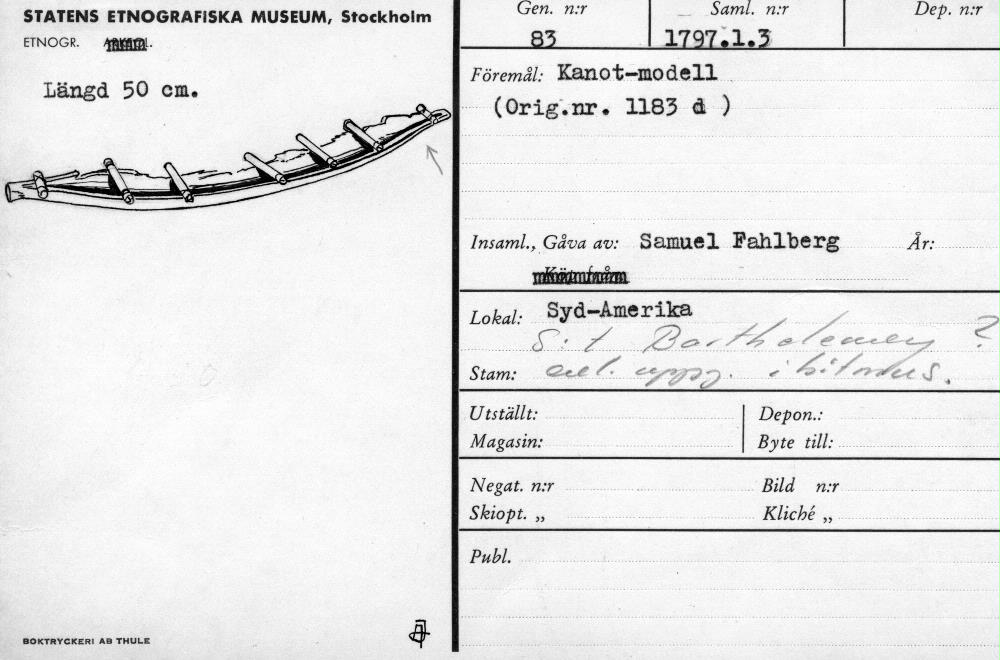 STATENS ETNOGRAFISKA MUSEUM, Stockholm
ETNOGR.
Längd 50 cm.
BOKTRYCKERI AB THULE
Gen. n:r Saml. n:r Dep. n:r
83 1797.1.3
Föremål: Kanot-modell
(Orig.nr. 1183 d )
Insaml., Gåva av: Samuel Fahlberg År:
Lokal: Syd-Amerika
S:t Barthelemy ?
Stam: enl. uppg.
Utställt: Depon.:
Magasin: Byte till:
Negat. n:r Bild n:r
Skiopt. „ Kliché „
Publ.